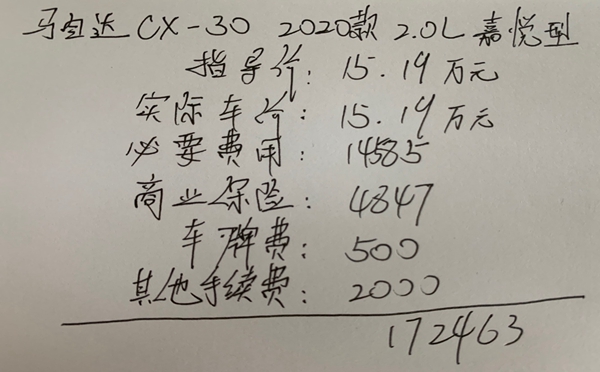 马自达 CX-30 2020款 2.0L 嘉悦型
指导价: 15.19万元
实际车价: 15.19万元
必要费用: 14585
商业保险: 4847
车牌费: 500
其他手续费: 2000
172463